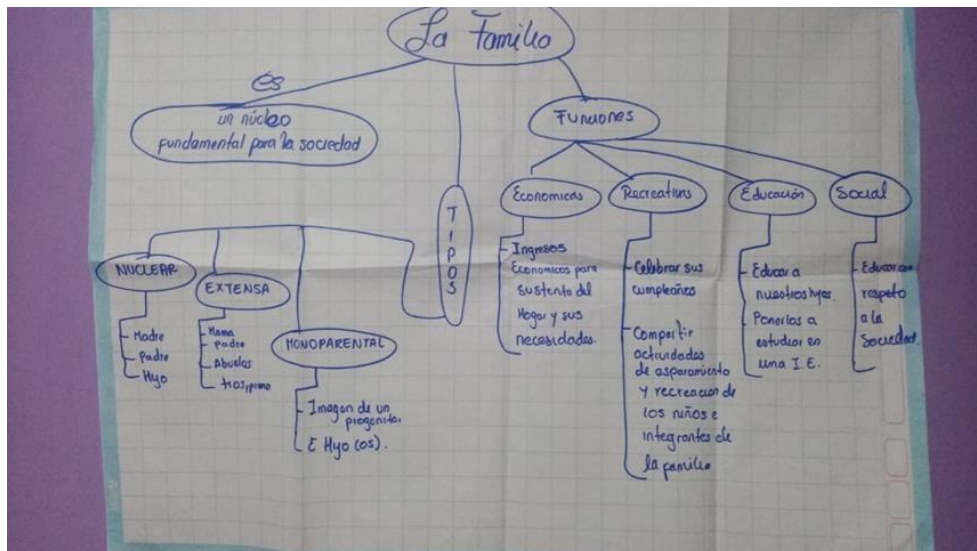 La Familia
es
un núcleo
fundamental para la sociedad
TIPOS
NUCLEAR
- Madre
- Padre
- Hijo
EXTENSA
- Mama
- padre
- Abuelos
- tios, primo
MONOPARENTAL
- Imagen de un
progenitor
E Hijo (os).
Funciones
Economicas
- Ingresos
Economicos para
sustento del
Hogar y sus
necesidades.
Recreativas
- Celebrar sus
cumpleaños
- Compartir
actividades
de esparamiento
y recreacion de
los niños e
integrantes de
la familia
Educación
- Educar a
nuestros hijos.
- Ponerlos a
estudiar en
una I.E.
Social
- Educar con
respeto
a la
Sociedad.